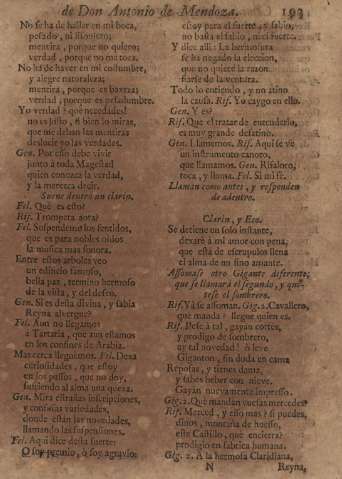 de Don Antonio de Mendoza. 193
No se ha de hallar en mi boca,
pesado, ni lisonjero;
mentira, porque no quiero;
verdad, porque no me toca.
No ha de haver en mi costumbre,
y alegre naturaleza;
mentira, porque es baxeza;
verdad, porque es pesadumbre.
Yo verdad? què necedades!
no es justo, si bien lo miras,
que me deban las mentiras
deslucir yo las verdades.
Gen. Por esso debe vivir
junto à toda Magestad
quien conozca la verdad,
y la merezca decir.
Suene dentro un clarin.
Fel. Què es esto?
Rif. Trompeta aora?
Fel. Suspendenos los sentidos,
que es para nobles oidos
la musica mas sonora.
Entre estos arboles veo
un edificio famoso,
bella paz, termino hermoso
de la vista, y del desseo.
Gen. Si es desta divina, y sabia
Reyna alvergue?
Fel. Aun no llegamos
à Tartaria, que aun estamos
en los confines de Arabia.
Mas cerca lleguemos. Fel. Dexa
curiosidades, que estoy
en los passos, que no doy,
sufriendo al alma una quexa.
Gen. Mira estrañas inscripciones,
y continuas variedades,
donde estàn las novedades,
llamando las suspensiones.
Fel. Aqui dice desta suerte:
O soy premio, ò soy agravio:
estoy para el fuerte, y sabio,
no basta el sabio, ni el fuerte.
Y dice alli: La hermosura
se ha negado la eleccion,
que no quiere la razon
fiarse de la ventura.
Todo lo entiendo, y no atino
la causa. Rif. Yo caygo en ello.
Gen. Y es?
Rif. Que el tratar de entendello,
es muy grande desatino.
Gen. Llamemos. Rif. Aqui se ve
un instrumento canoro,
que llamamos. Gen. Risaloro,
toca, y llama. Fel. Si mi fè.
Llaman como antes, y responden
de adentro.
Clarin, y Eco.
Se detiene un solo instante,
dexarà à mi amor con pena,
que està de escrupulos llena
el alma de un fino amante.
Assomase otro Gigante diferente;
que se llamarà el segundo, y
tese el sombrero.
Rif. Yà se assoman. Gig. 2. Cavallero,
què manda? llegue quien es.
Rif. Pese à tal, gayàn cortès,
y prodigo de sombrero,
ay tal novedad! ò leve
Giganton, sin duda en cama
Reposas, y tienes dama,
y sabes beber con nieve.
Gayàn nuevamente impresso.
Gig. 2. Què mandan vuessas mercedes?
Rif. Merced, y esso mas? si puedes,
dinos, montaña de huesso,
este Castillo, què encierra?
prodigio en fabrica humana.
Gig. 2. A la hermosa Claridiana,
N Reyna,